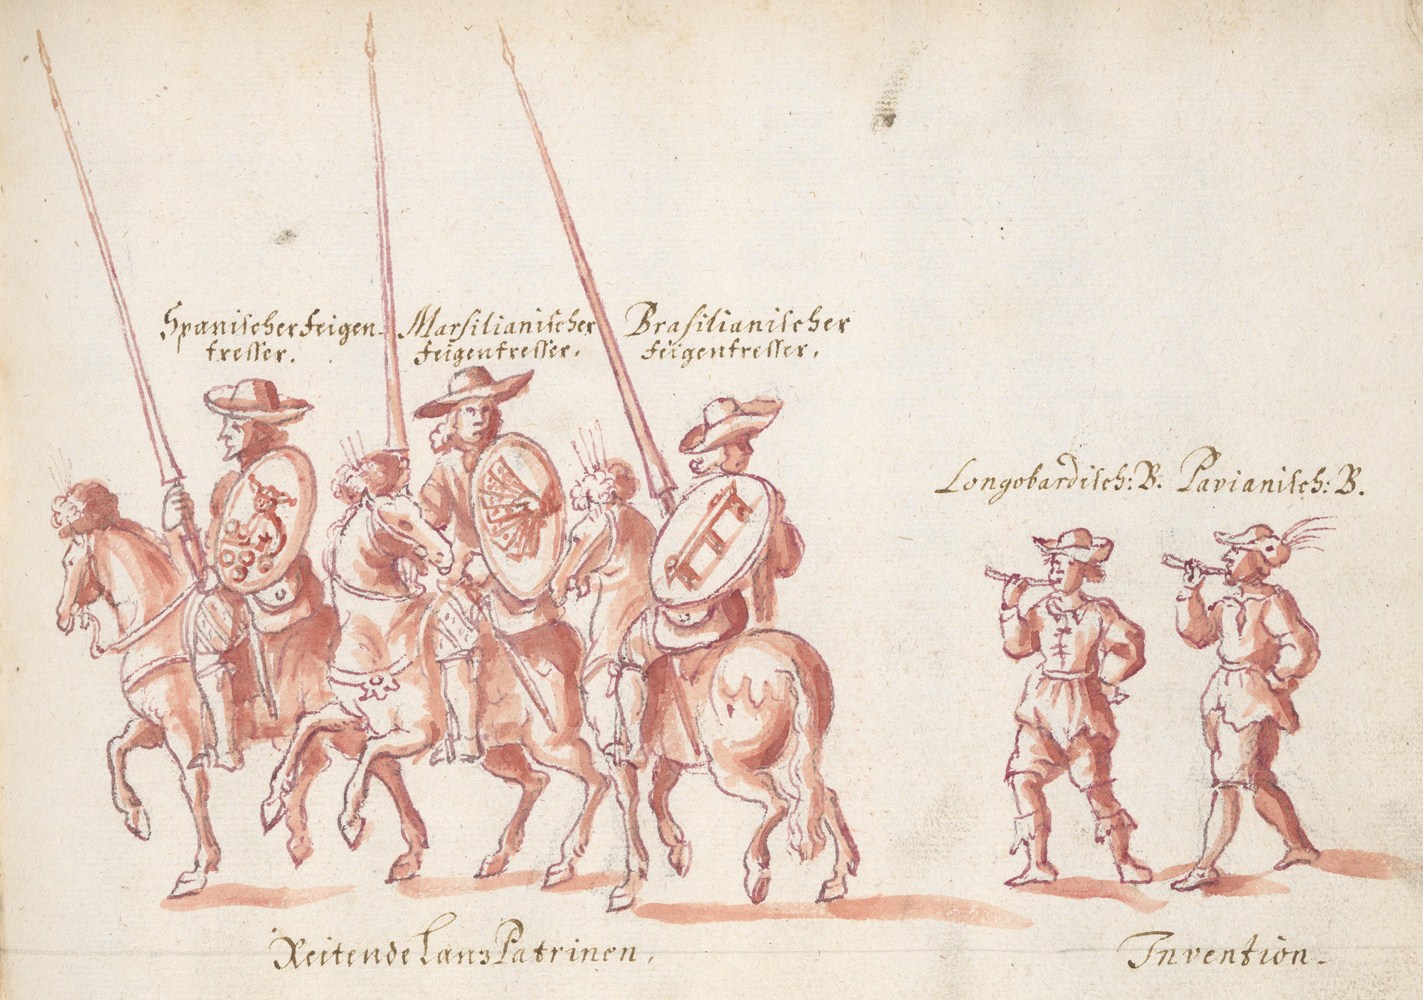 Spanischer Feigen-
fresser.
Marsilianischer
Feigenfresser.
Brasilianischer
Feigenfresser.
Longobardisch: B. Pavianisch: B.
Reitende Lanz Patrinen.
Invention.